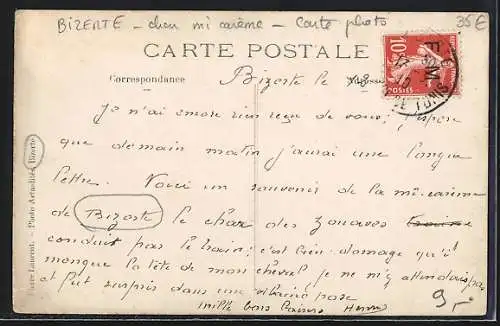 BIZERTE - char mi carème - Carte photo 35€
CARTE POSTALE
Correspondance
Bizerte le
10c
Je n'ai encore rien reçu de vous; j'espère
que demain matin j'aurai une longue
lettre. Voici un souvenir de la mi-carême
de Bizerte le char des Zouaves
conduit pas le train; c'est bien domage qu'il
manque la tête de mon cheval, je ne m'y attendais pas
et fut surpris dans une vilaine pose
mille bons baisers Henri
9,-
Pierre Laurent. - Photo Actualités Bizerte